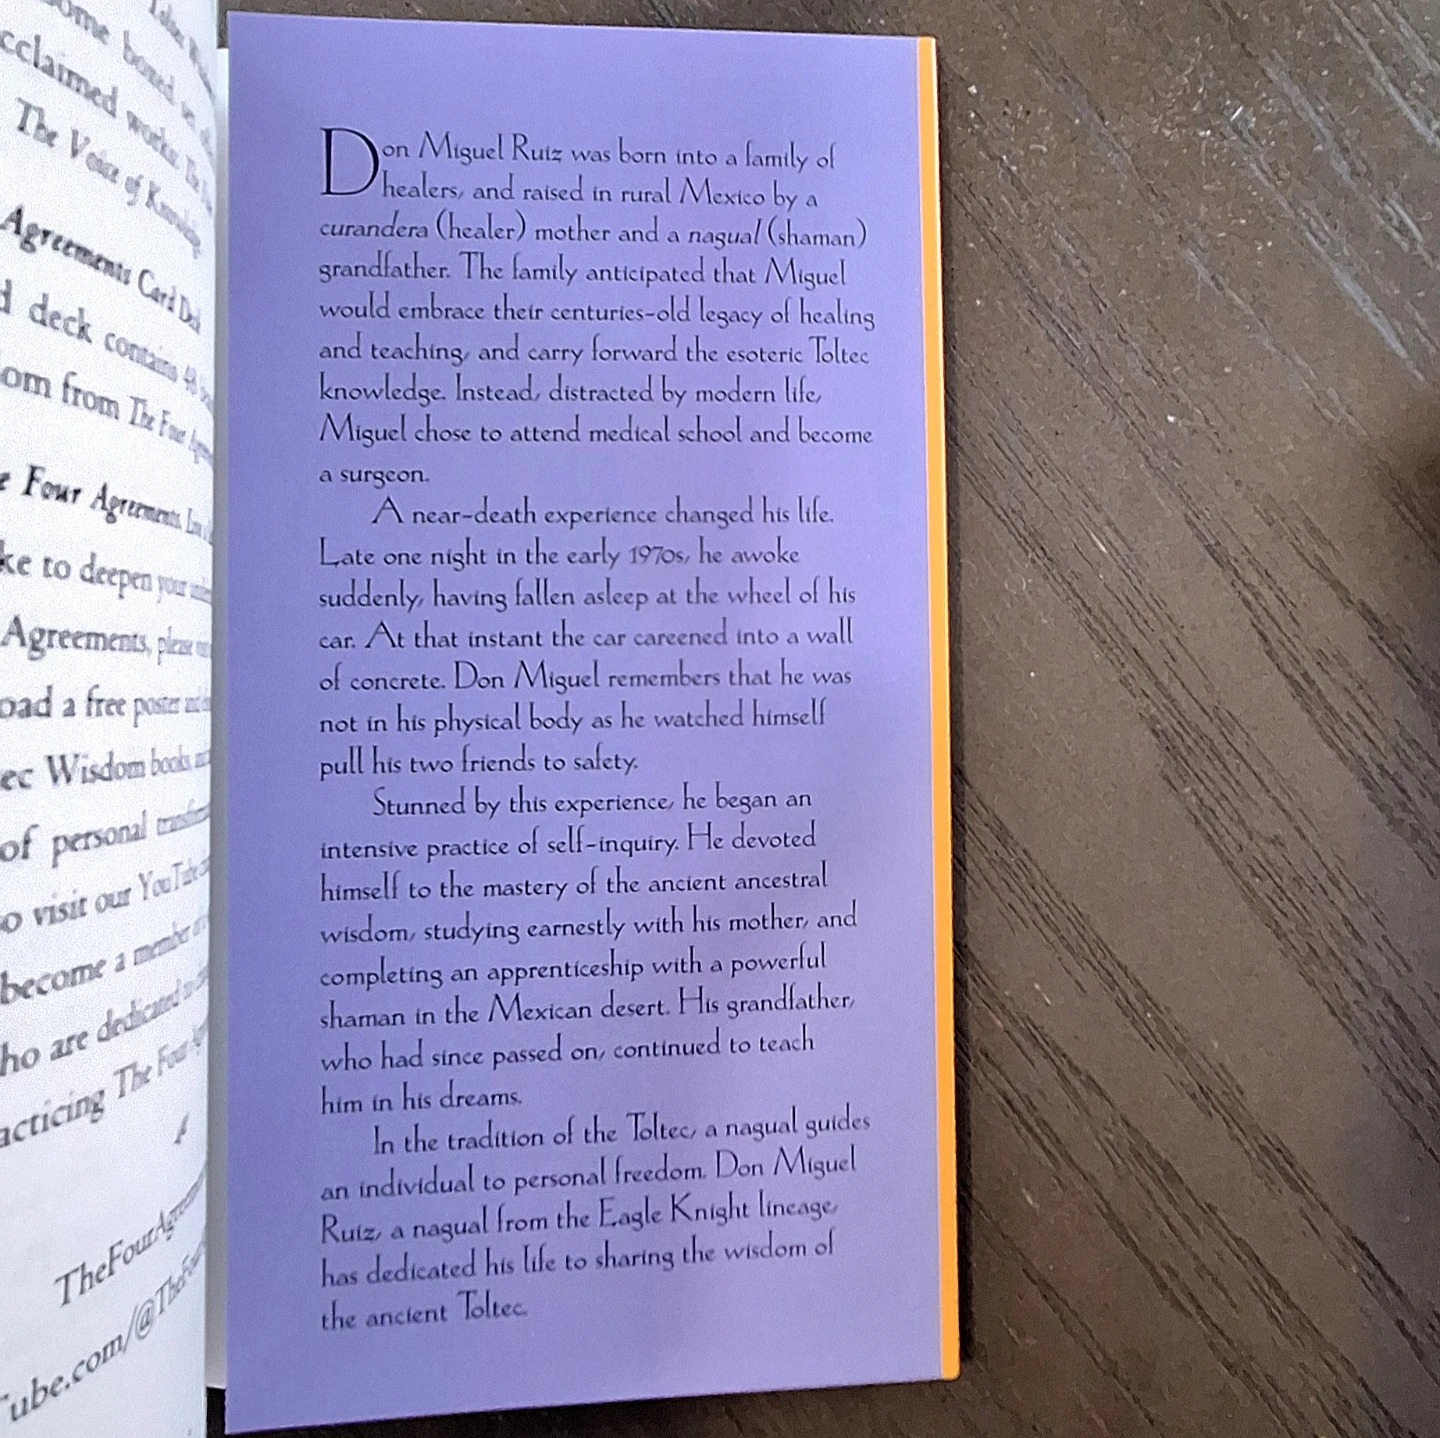 some boxed
cclaimed works: The
The Voice of Knowledge
Agreements Card Deck
deck contains 48
om from The Four
Four Agreements
ke to deepen your
Agreements, please
oad a free poster
ec Wisdom books
of personal
o visit our YouTube
become a member of
ho are dedicated to
acticing The Four
TheFourAgreemen
Tube.com/@TheFour
Don Miguel Ruiz was born into a family of
healers, and raised in rural Mexico by a
curandera (healer) mother and a nagual (shaman)
grandfather. The family anticipated that Miguel
would embrace their centuries-old legacy of healing
and teaching, and carry forward the esoteric Toltec
knowledge. Instead, distracted by modern life,
Miguel chose to attend medical school and become
a surgeon.
A near-death experience changed his life.
Late one night in the early 1970s, he awoke
suddenly, having fallen asleep at the wheel of his
car. At that instant the car careened into a wall
of concrete. Don Miguel remembers that he was
not in his physical body as he watched himself
pull his two friends to safety.
Stunned by this experience, he began an
intensive practice of self-inquiry. He devoted
himself to the mastery of the ancient ancestral
wisdom, studying earnestly with his mother, and
completing an apprenticeship with a powerful
shaman in the Mexican desert. His grandfather,
who had since passed on, continued to teach
him in his dreams.
In the tradition of the Toltec, a nagual guides
an individual to personal freedom. Don Miguel
Ruiz, a nagual from the Eagle Knight lineage,
has dedicated his life to sharing the wisdom of
the ancient Toltec.